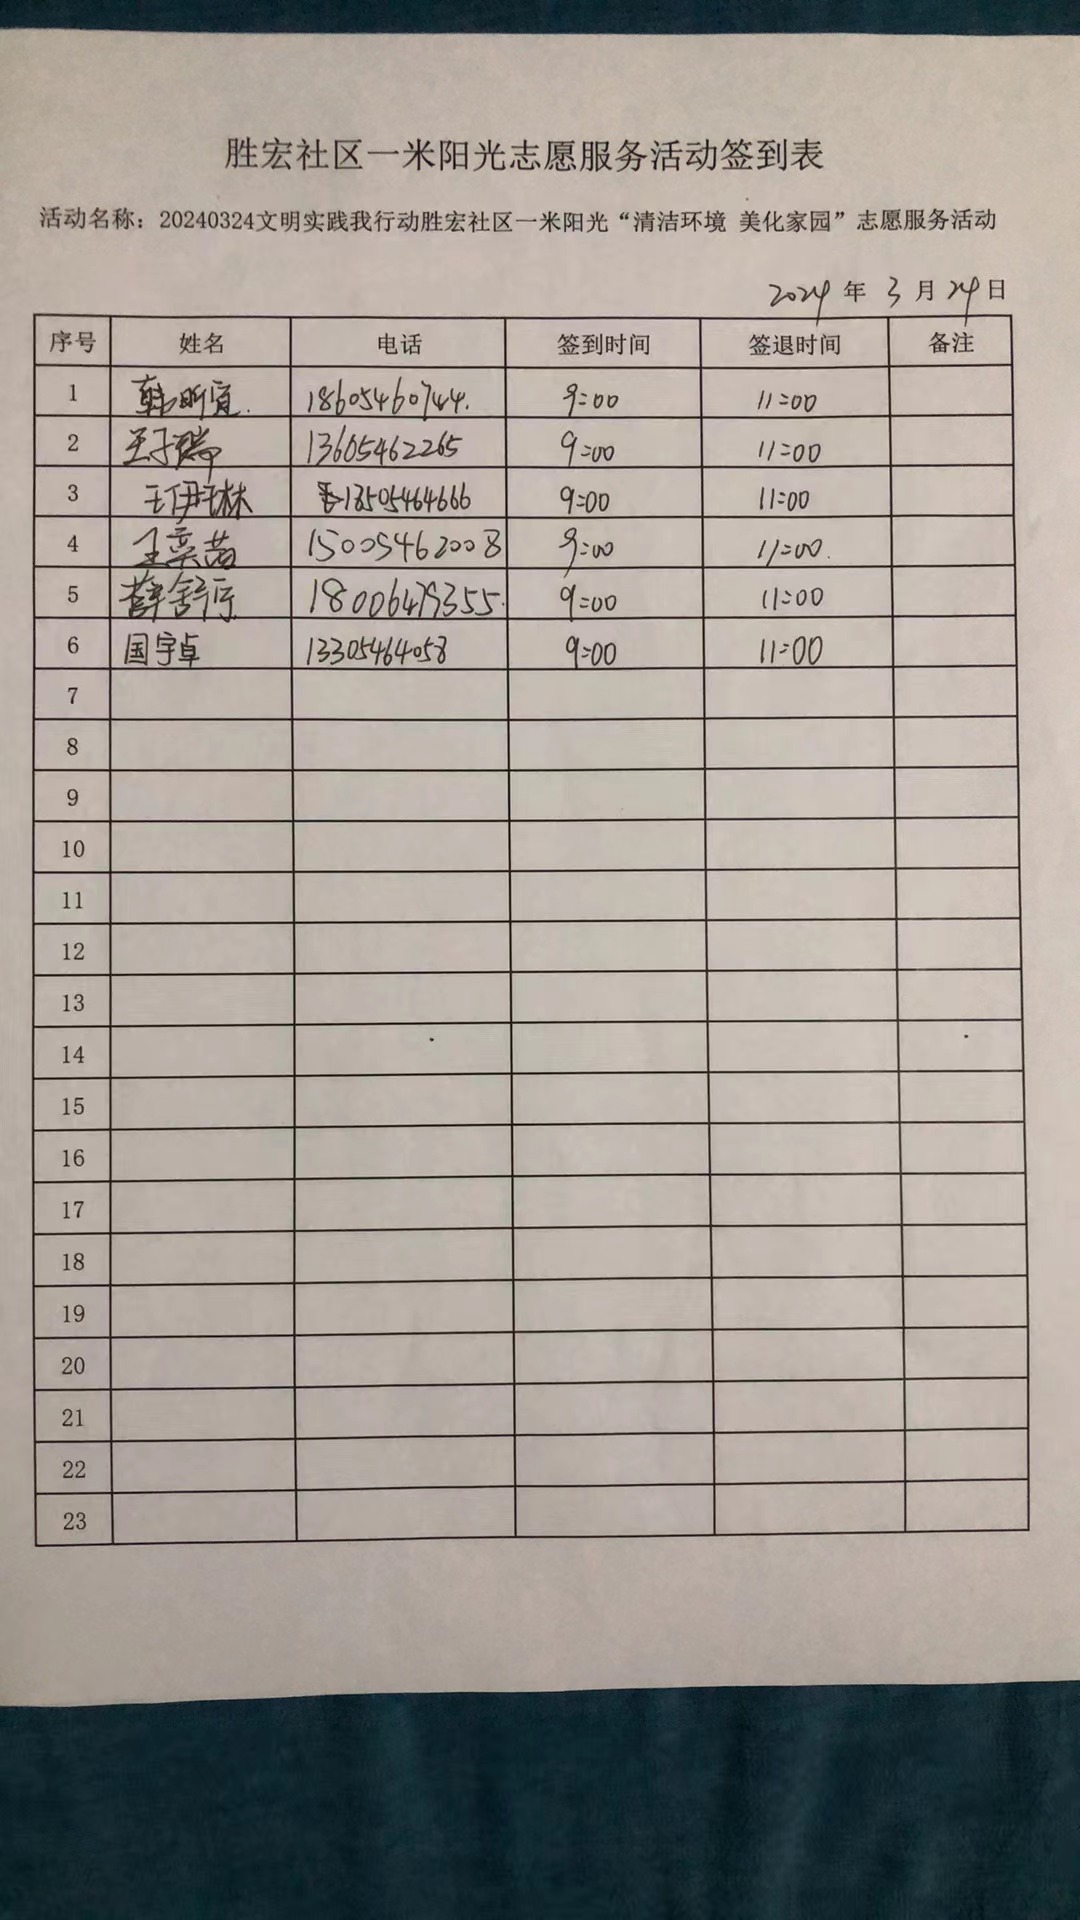 胜宏社区一米阳光志愿服务活动签到表
活动名称：20240324文明实践我行动胜宏社区一米阳光“清洁环境 美化家园”志愿服务活动
2024 年 3 月 24 日
序号 姓名 电话 签到时间 签退时间 备注
1 韩昕宜. 18605460744. 9:00 11:00
2 王子瑞 13605462265 9:00 11:00
3 王伊琳 13505464666 9:00 11:00
4 王奕茜 15005462008 9:00 11:00.
5 薛舒 18006479355. 9:00 11:00
6 国宇卓 13305464058 9:00 11:00
7
8
9
10
11
12
13
14
15
16
17
18
19
20
21
22
23